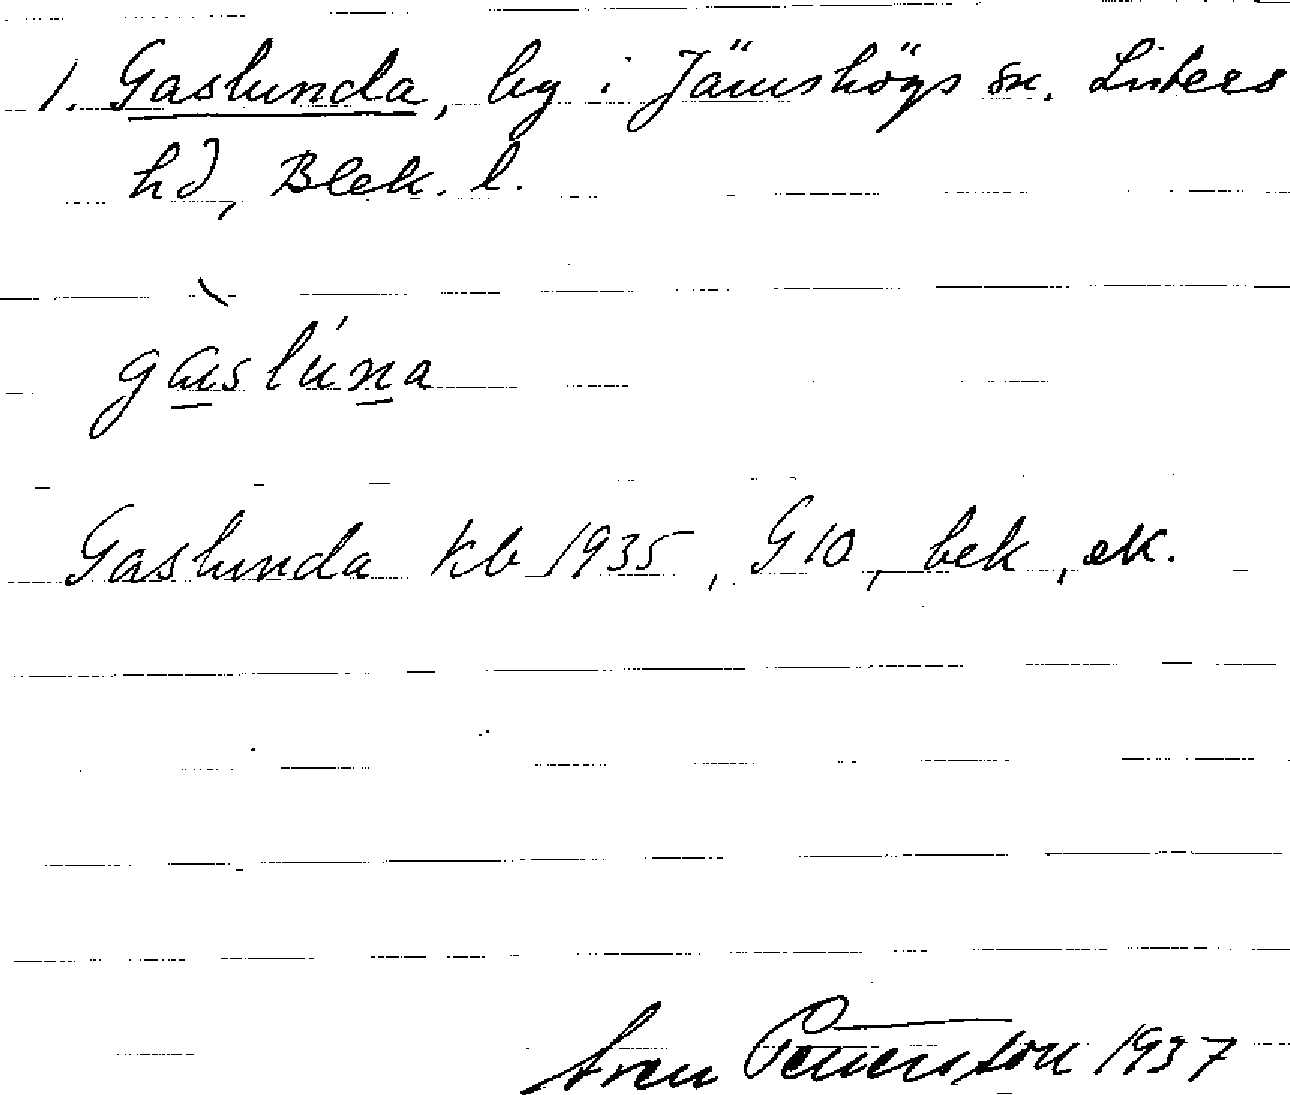 1. Gaslunda, by i Jämshögs sn. Listers
hd, Blek. l.
gàslúna
Gaslunda kb 1935, G10, bek, ek.
Sven 1937